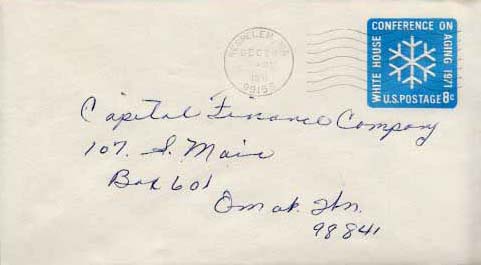 NESPELEM, WA
DEC
1971
99155
WHITE HOUSE
CONFERENCE ON
AGING 1971
U.S. POSTAGE 8c
Capital Finance Company
107. S. Main
Box 601
Omak. Wn.
98841